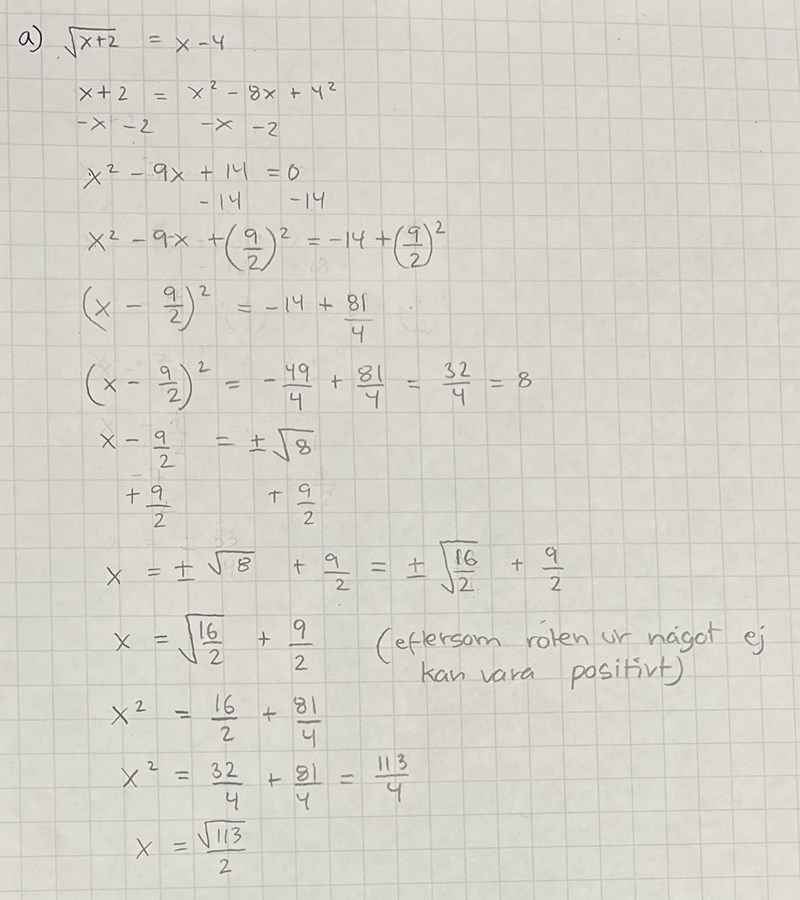 a) √(x+2) = x - 4
x + 2 = x² - 8x + 4²
-x -2 -x -2
x² - 9x + 14 = 0
-14 -14
x² - 9x + (9/2)² = -14 + (9/2)²
(x - 9/2)² = -14 + 81/4
(x - 9/2)² = -49/4 + 81/4 = 32/4 = 8
x - 9/2 = ±√8
+ 9/2 + 9/2
x = ±√8 + 9/2 = ±√(16/2) + 9/2
x = √(16/2) + 9/2 (eftersom roten ur något ej
kan vara positivt)
x² = 16/2 + 81/4
x² = 32/4 + 81/4 = 113/4
x = √113/2